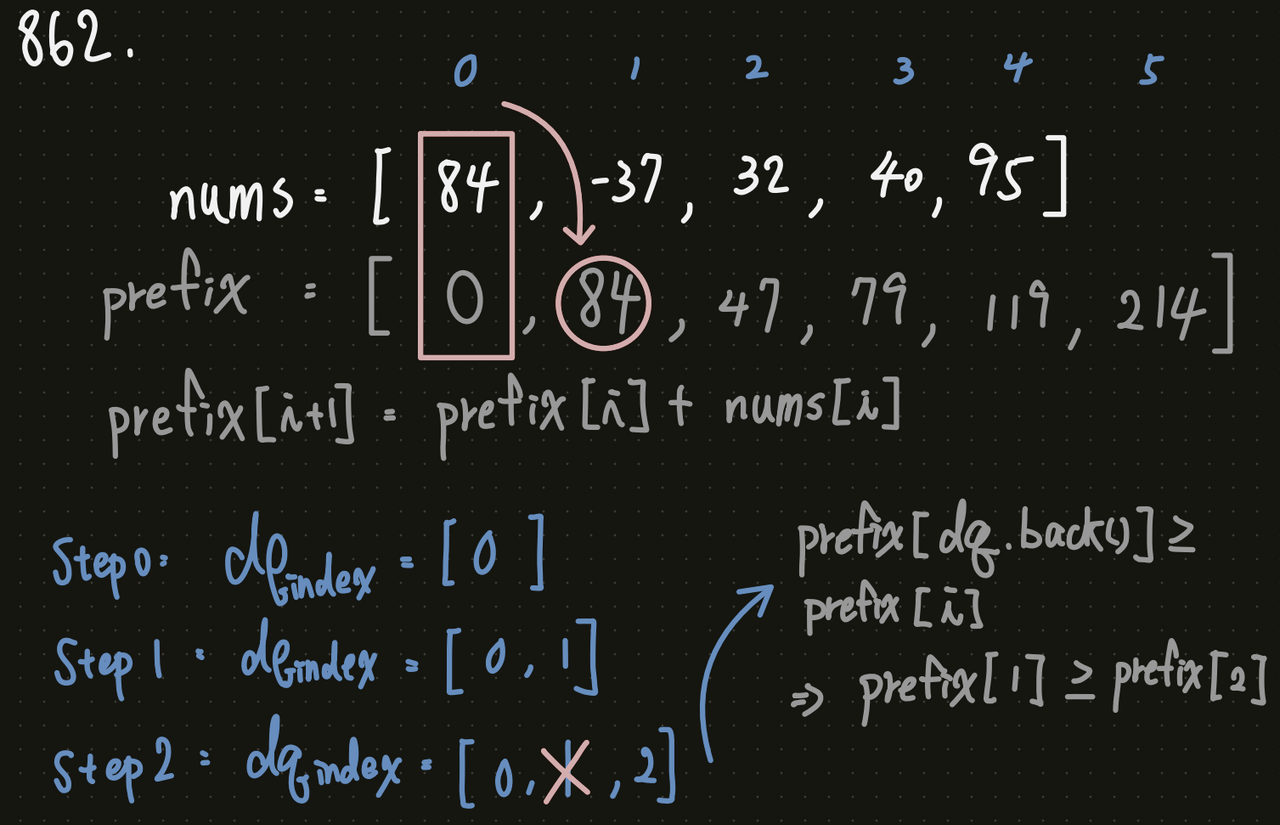 862.
0 1 2 3 4 5
nums = [ 84 , -37 , 32 , 40 , 95 ]
prefix = [ 0 , 84 , 47 , 79 , 119 , 214 ]
prefix[i+1] = prefix[i] + nums[i]
Step 0: dq index = [ 0 ]
Step 1 : dq index = [ 0 , 1 ]
Step 2 : dq index = [ 0 , 1 , 2 ]
prefix[ dq.back() ] ≥
prefix [ i ]
⇒ prefix[ 1 ] ≥ prefix[ 2 ]